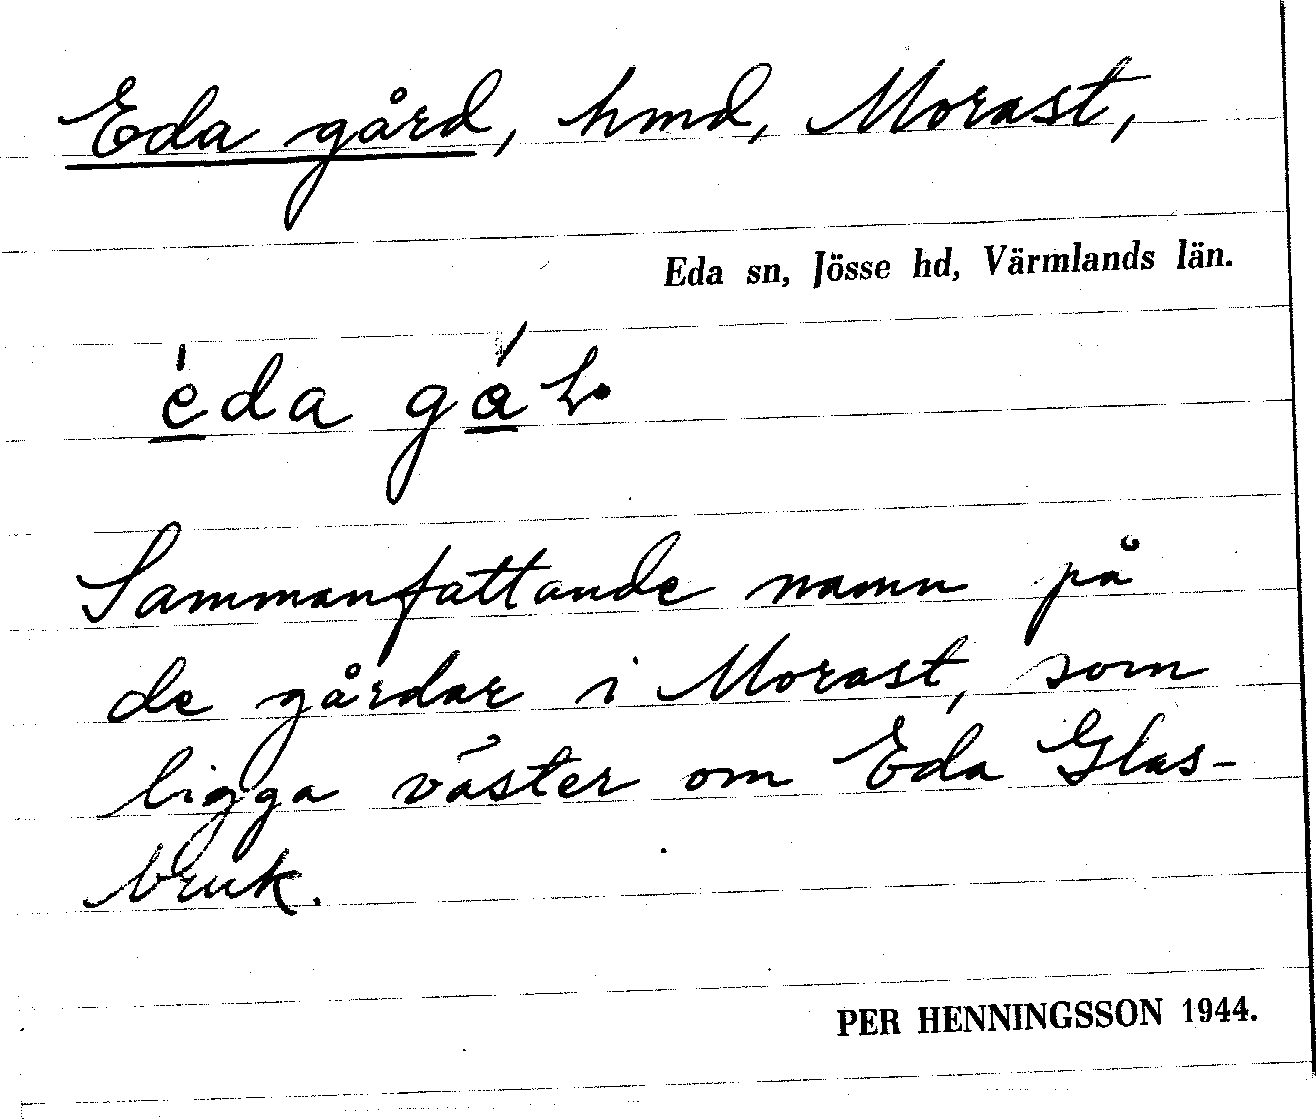 Eda gård, hmd, Morast,
Eda sn, Jösse hd, Värmlands län.
éda
Sammanfattande namn på
de gårdar i Morast, som
ligga väster om Eda Glas-
bruk.
PER HENNINGSSON 1944.